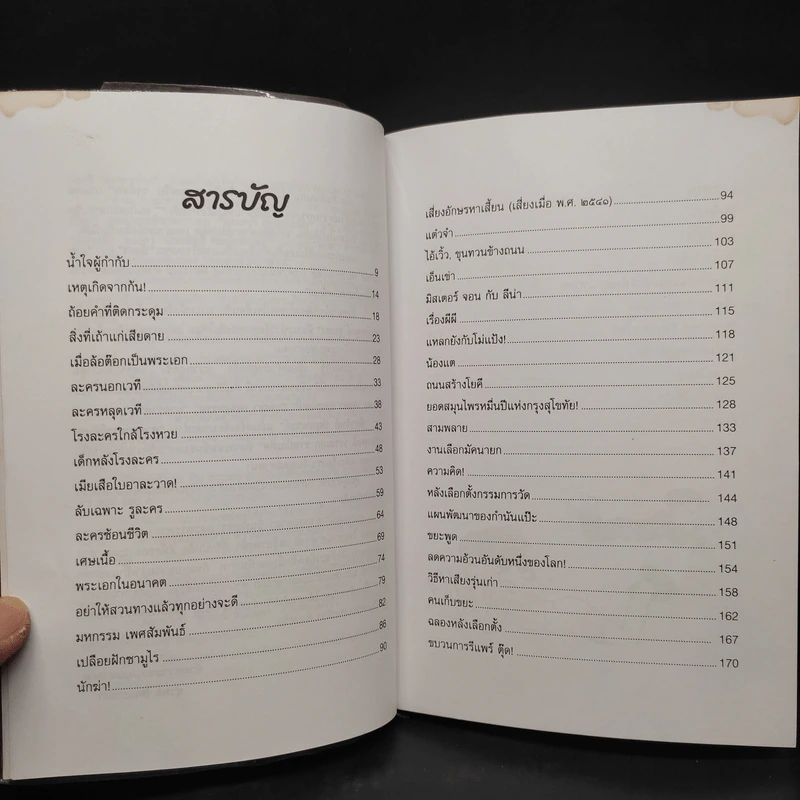 สารบัญ
น้ำใจผู้กำกับ 9
เหตุเกิดจากกัน! 14
ถ้อยคำที่ติดกระดุม 18
สิ่งที่เถ้าแก่เสียดาย 23
เมื่อล้อต๊อกเป็นพระเอก 28
ละครนอกเวที 33
ละครหลุดเวที 38
โรงละครใกล้โรงหวย 43
เด็กหลังโรงละคร 48
เมียเสือใบอาละวาด! 53
ลับเฉพาะ รูละคร 59
ละครซ้อนชีวิต 64
เศษเนื้อ 69
พระเอกในอนาคต 74
อย่าให้สวนทางแล้วทุกอย่างจะดี 79
มหกรรม เพศสัมพันธ์ 82
เปลือยฝักซามูไร 86
นักฆ่า! 90
เสี่ยงอักษรหาเสี้ยน (เสี่ยงเมื่อ พ.ศ. ๒๕๔๑) 94
แต๋วจ๋า 99
ไอ้เวิ้ว, ขุนทวนข้างถนน 103
เอ็นเข่า 107
มิสเตอร์ จอน กับ ลีน่า 111
เรื่องผีผี 115
แหลกยังกับโม่แป้ง! 118
น้องแต 121
ถนนสร้างโยคี 125
ยอดสมุนไพรหมื่นปีแห่งกรุงสุโขทัย! 128
สามพลาย 133
งานเลือกมัคนายก 137
ความคิด! 141
หลังเลือกตั้งกรรมการวัด 144
แผนพัฒนาของกำนันแป๊ะ 148
ขยะพูด 151
ลดความอ้วนอันดับหนึ่งของโลก! 154
วิธีหาเสียงรุ่นเก่า 158
คนเก็บขยะ 162
ฉลองหลังเลือกตั้ง 167
ขบวนการรีแพร์ ตุ๊ด! 170